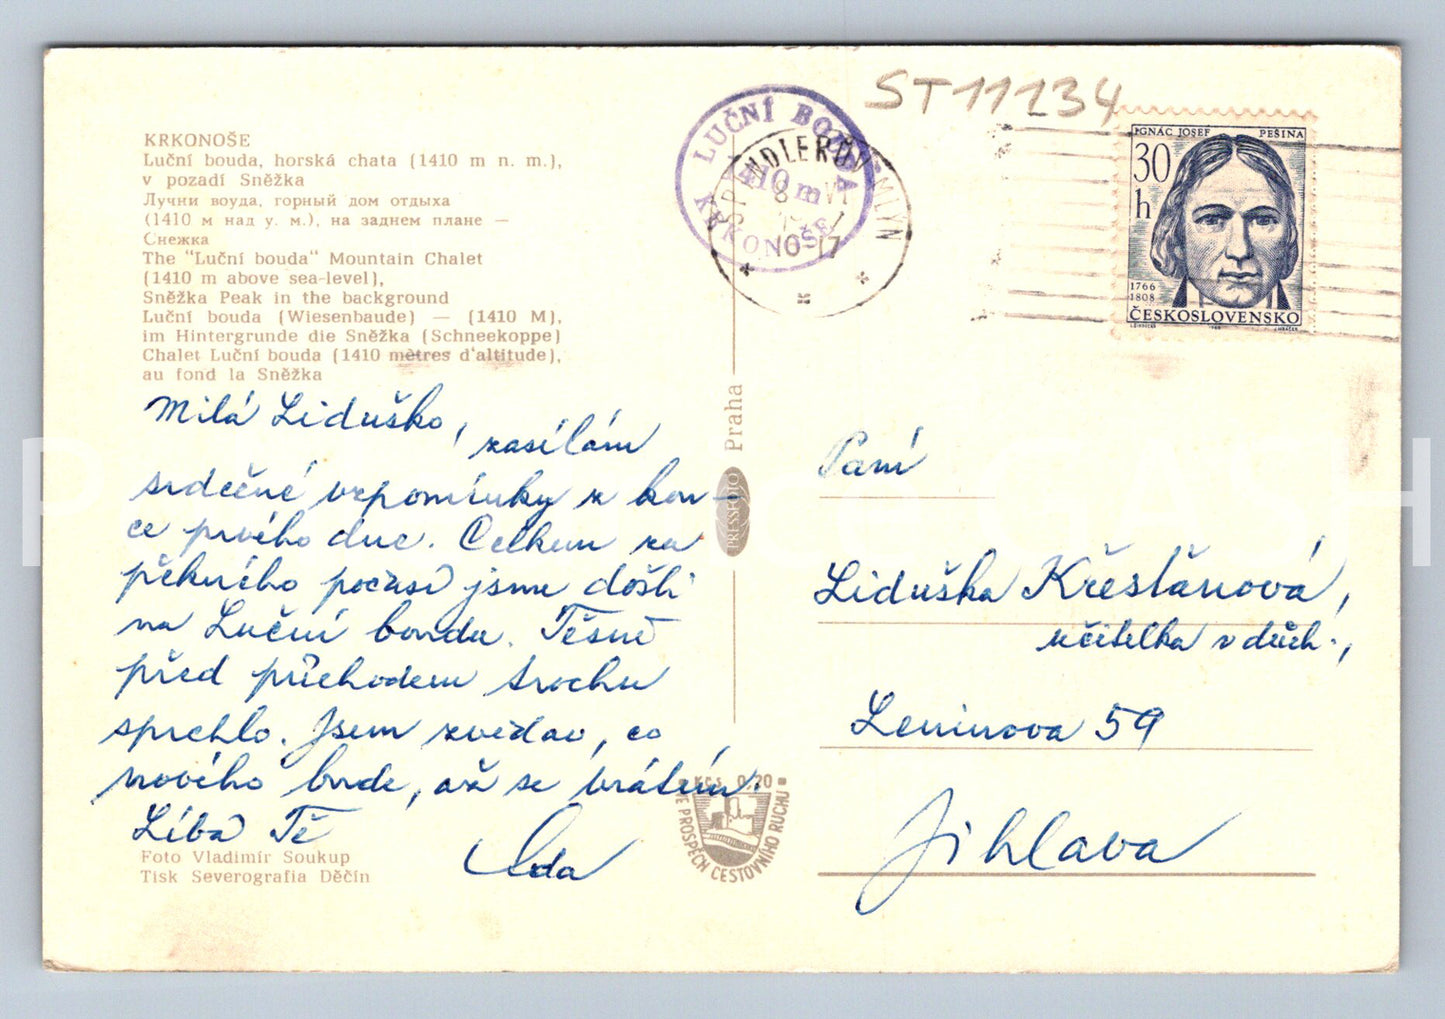 ST11234
KRKONOŠE
Luční bouda, horská chata (1410 m n. m.),
v pozadí Sněžka
Лучни воуда, горный дом отдыха
(1410 м над у. м.), на заднем плане —
Снежка
The "Luční bouda" Mountain Chalet
(1410 m above sea-level),
Sněžka Peak in the background
Luční bouda (Wiesenbaude) — (1410 M),
im Hintergrunde die Sněžka (Schneekoppe)
Chalet Luční bouda (1410 mètres d'altitude),
au fond la Sněžka
Milá Liduško, zasílám
srdečné vzpomínky z kon-
ce prvého dne. Celkem za
pěkného počasí jsme došli
na Luční boudu. Těsně
před příchodem trochu
sprchlo. Jsem zvědav, co
nového bude, až se vrátím.
Líbá Tě
Ada
Foto Vladimír Soukup
Tisk Severografia Děčín
LUČNÍ BOUDA
1410 m
KRKONOŠE
ŠPINDLERŮV MLÝN
8 VI
10-17
Praha
PRESSFOTO
Kčs 0,20
VE PROSPĚCH CESTOVNÍHO RUCHU
IGNÁC JOSEF PEŠINA
30
h
1766
1808
ČESKOSLOVENSKO
Paní
Liduška Křesťanová,
učitelka v důch.,
Leninova 59
Jihlava